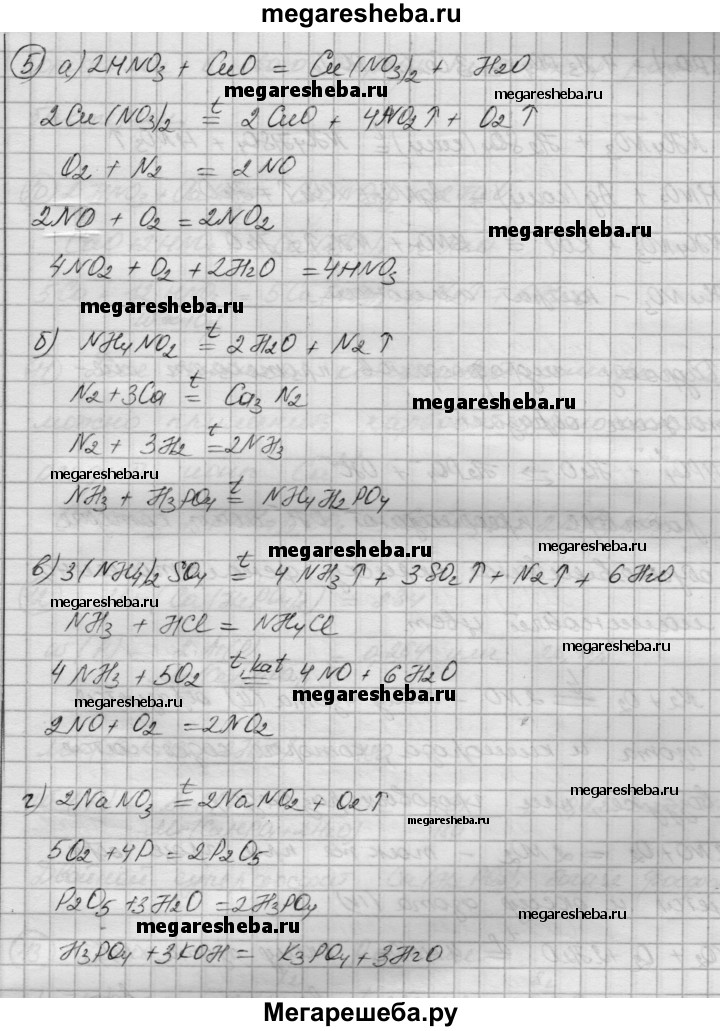 megaresheba.ru
5) а) 2HNO3 + CuO = Cu(NO3)2 + H2O
megaresheba.ru megaresheba.ru
2Cu(NO3)2 =t 2CuO + 4NO2↑ + O2↑
O2 + N2 = 2NO
2NO + O2 = 2NO2
megaresheba.ru
4NO2 + O2 + 2H2O = 4HNO3
megaresheba.ru
б) NH4NO2 =t 2H2O + N2↑
N2 + 3Ca =t Ca3N2
megaresheba.ru
N2 + 3H2 =t 2NH3
megaresheba.ru
NH3 + H3PO4 =t NH4H2PO4
megaresheba.ru megaresheba.ru
в) 3(NH4)2SO4 =t 4NH3↑ + 3SO2↑ + N2↑ + 6H2O
megaresheba.ru
NH3 + HCl = NH4Cl
megaresheba.ru
4NH3 + 5O2 =t, kat 4NO + 6H2O
megaresheba.ru
2NO + O2 = 2NO2
г) 2NaNO3 =t 2NaNO2 + O2↑
megaresheba.ru
megaresheba.ru
5O2 + 4P = 2P2O5
P2O5 + 3H2O = 2H3PO4
megaresheba.ru megaresheba.ru
H3PO4 + 3KOH = K3PO4 + 3H2O
Мегарешеба.ру